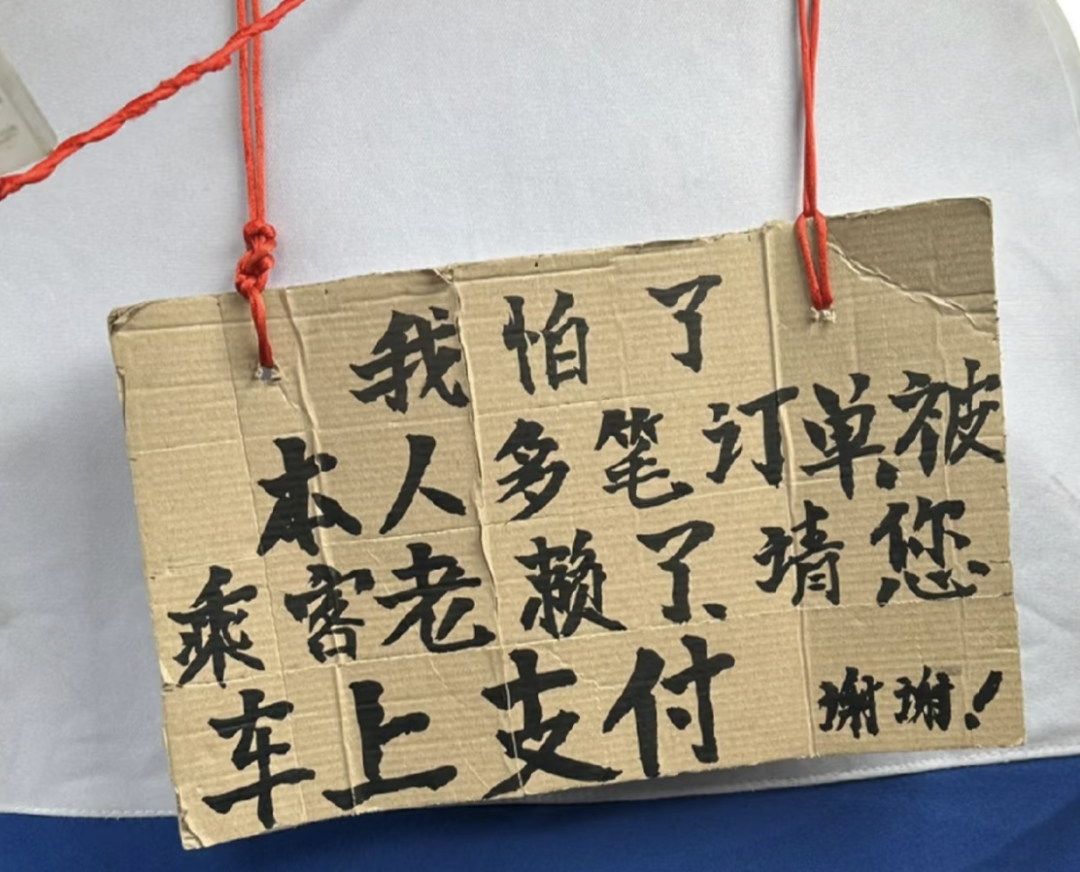 我怕了
本人多笔订单被
乘客老赖了、请您
车上支付 谢谢！